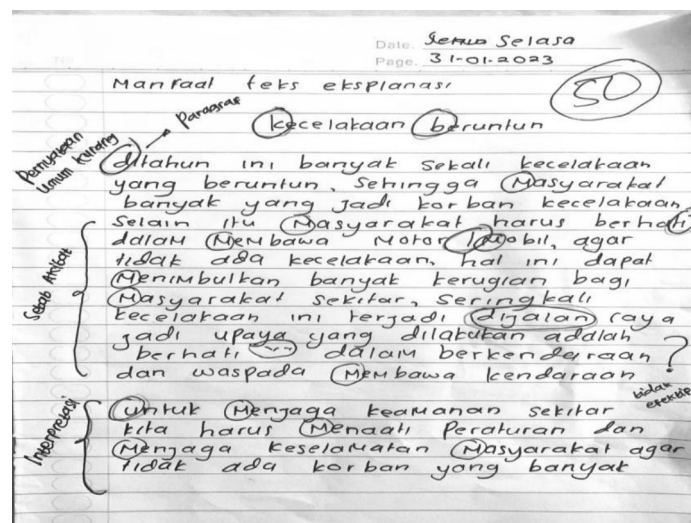 Date. Selasa
Page. 31-01-2023
Manfaat teks eksplanasi
50
Paragraf
kecelakaan beruntun
Pernyataan Umum kurang
ditahun ini banyak sekali kecelakaan
yang beruntun, sehingga Masyarakat
banyak yang jadi korban kecelakaan.
Sebab Akibat
Selain itu Masyarakat harus berhati
dalam Membawa Motor / Mobil, agar
tidak ada kecelakaan, hal ini dapat
Menimbulkan banyak kerugian bagi
Masyarakat sekitar, Seringkali
kecelakaan ini terjadi dijalan raya
jadi upaya yang dilakukan adalah
berhati -- dalam berkendaraan ?
dan waspada Membawa kendaraan
tidak efektif
Interpretasi
untuk Menjaga keamanan sekitar
kita harus Menaati Peraturan dan
Menjaga keselamatan Masyarakat agar
tidak ada korban yang banyak